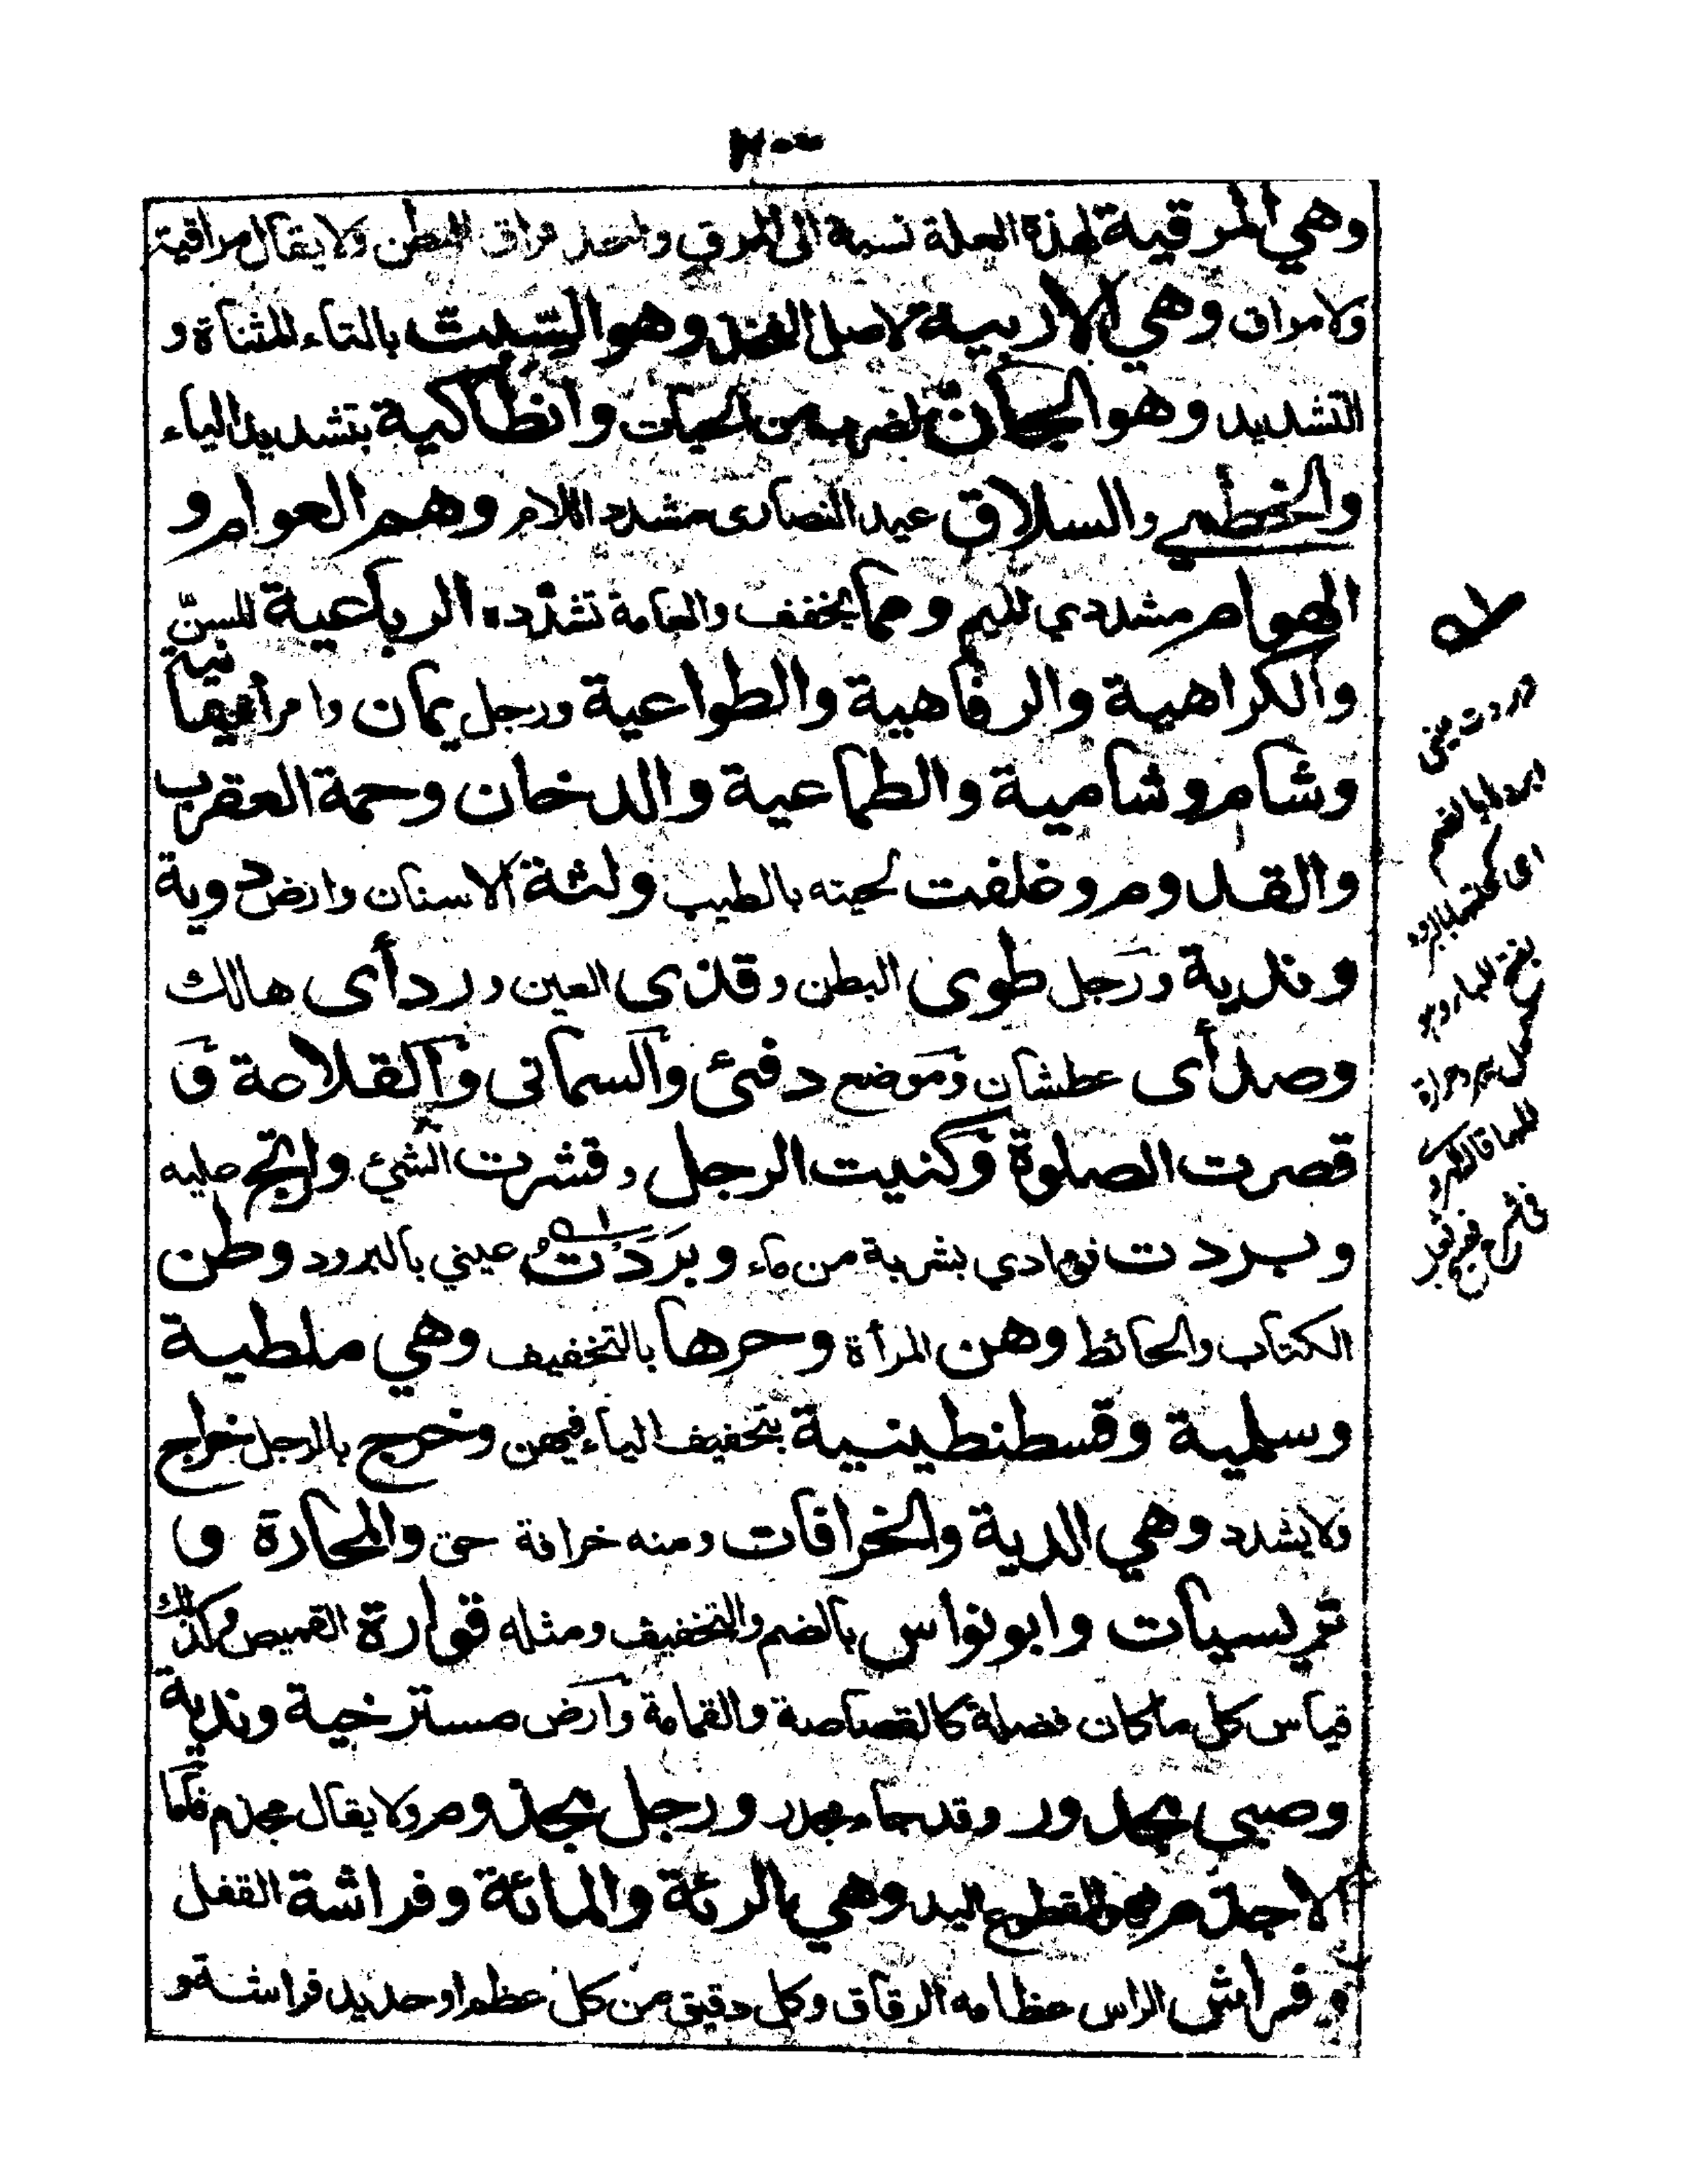 وهي المرقية لهذه العلة نسبة الى المرق واحد مراق البطن ولا يقال مراقية
ولا مراق وهي الاربية لاصل الفخذ وهو السِّبِتّ بالتاء المثناة و
التشديد وهو الجانّ لضرب من الحيات وانطاكية بتشديد الياء
والخطمي والسلاق عيد النصارى مشدد اللام وهم العوام و
الهوام مشددي الميم ومما يخفف والعامة تشدده الرباعية للسنّ
والكراهية والرفاهية والطواعية ورجل يمان وامرأة يمانية
وشام وشامية والطماعية والدخان وحمة العقرب
والقدوم وغلفت لحيته بالطيب ولثة الاسنان وارض دوية
وندية ورجل طوى البطن وقذى العين وردأى هالك
وصدأى عطشان وموضع دفئ والسمانى والقلاعة و
قصرت الصلوة وكنيت الرجل وقشرت الشئ وارتج عليه
وبردت فوادي بشربة من ماء وبَرَدْتُ عيني بالبرود وطن
الكتاب والحائط وهن المرأة وحرها بالتخفيف وهي ملطية
وسلمية وقسطنطينية بتخفيف الياء فيهن وخرج بالرجل خراج
ولا يشدد وهي الدية والخرافات ومنه خرافة حق والمحارة و
تريسيات وابو نواس بالضم والتخفيف ومثله قوارة القميص وكذلك
قياس كل ما كان فضلة كالقصاصة والقمامة وارض مسترخية وندية
وصبي مجدور وقد جاء مجدر ورجل مجذوم ولا يقال مجذم فاما
الاجذم فهو المقطوع اليد وهي الرئة والمائة وفراشة القفل
وفراش الراس عظامه الرقاق وكل دقيق من كل عظم او حديد فراشة و